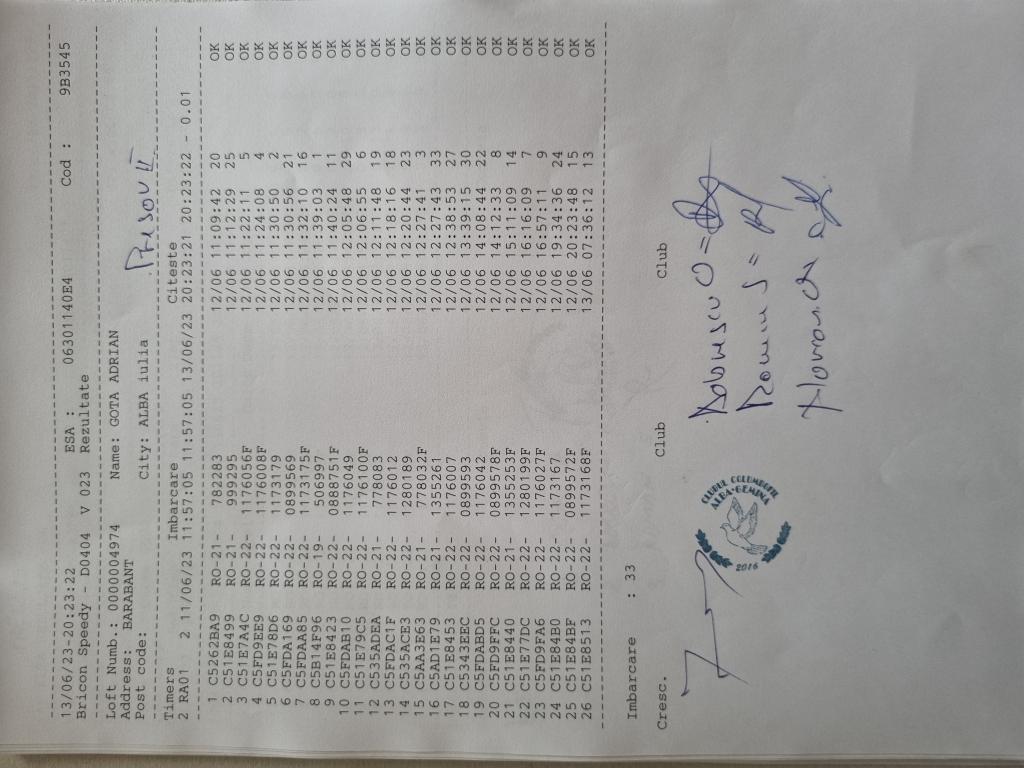 13/06/23-20:23:22 ESA : 06301140E4 Cod : 9B3545
Bricon Speedy - D0404 V 023 Rezultate
Loft Numb.: 0000004974 Name: GOTA ADRIAN
Address: BARABANT
Post code: City: ALBA iulia
Timers Imbarcare Citeste
2 RA01 2 11/06/23 11:57:05 11:57:05 13/06/23 20:23:21 20:23:22 - 0.01
1 C5262BA9 RO-21- 782283 12/06 11:09:42 20 OK
2 C51E8499 RO-21- 999295 12/06 11:12:29 25 OK
3 C51E7A4C RO-22- 1176056F 12/06 11:22:11 5 OK
4 C5FD9EE9 RO-22- 1176008F 12/06 11:24:08 4 OK
5 C51E78D6 RO-22- 1173179 12/06 11:30:50 2 OK
6 C5FDA169 RO-22- 0899569 12/06 11:30:56 21 OK
7 C5FDAA85 RO-22- 1173175F 12/06 11:32:10 16 OK
8 C5B14F96 RO-19- 506997 12/06 11:39:03 1 OK
9 C51E8423 RO-22- 0888751F 12/06 11:40:24 11 OK
10 C5FDAB10 RO-22- 1176049 12/06 12:05:48 29 OK
11 C51E79C5 RO-22- 1176100F 12/06 12:06:55 6 OK
12 C535ADEA RO-21- 778083 12/06 12:11:48 19 OK
13 C5FDAC1F RO-22- 1176012 12/06 12:18:16 18 OK
14 C535ACE3 RO-22- 1280189 12/06 12:20:44 23 OK
15 C5AA3E63 RO-21- 778032F 12/06 12:27:41 3 OK
16 C5AD1E79 RO-21- 1355261 12/06 12:27:43 33 OK
17 C51E8453 RO-22- 1176007 12/06 12:38:53 27 OK
18 C5343EEC RO-22- 0899593 12/06 13:39:15 30 OK
19 C5FDABD5 RO-22- 1176042 12/06 14:08:44 22 OK
20 C5FD9FFC RO-22- 0899578F 12/06 14:12:33 8 OK
21 C51E8440 RO-21- 1355253F 12/06 15:11:09 14 OK
22 C51E77DC RO-22- 1280199F 12/06 16:16:09 7 OK
23 C5FD9FA6 RO-22- 1176027F 12/06 16:57:11 9 OK
24 C51E84B0 RO-22- 1173167 12/06 19:34:36 24 OK
25 C51E84BF RO-22- 0899572F 12/06 20:23:48 15 OK
26 C51E8513 RO-22- 1173168F 13/06 07:36:12 13 OK
Imbarcare : 33
Cresc. Club Club
CLUBUL COLUMBOFIL
ALBA-GEMINA
2016